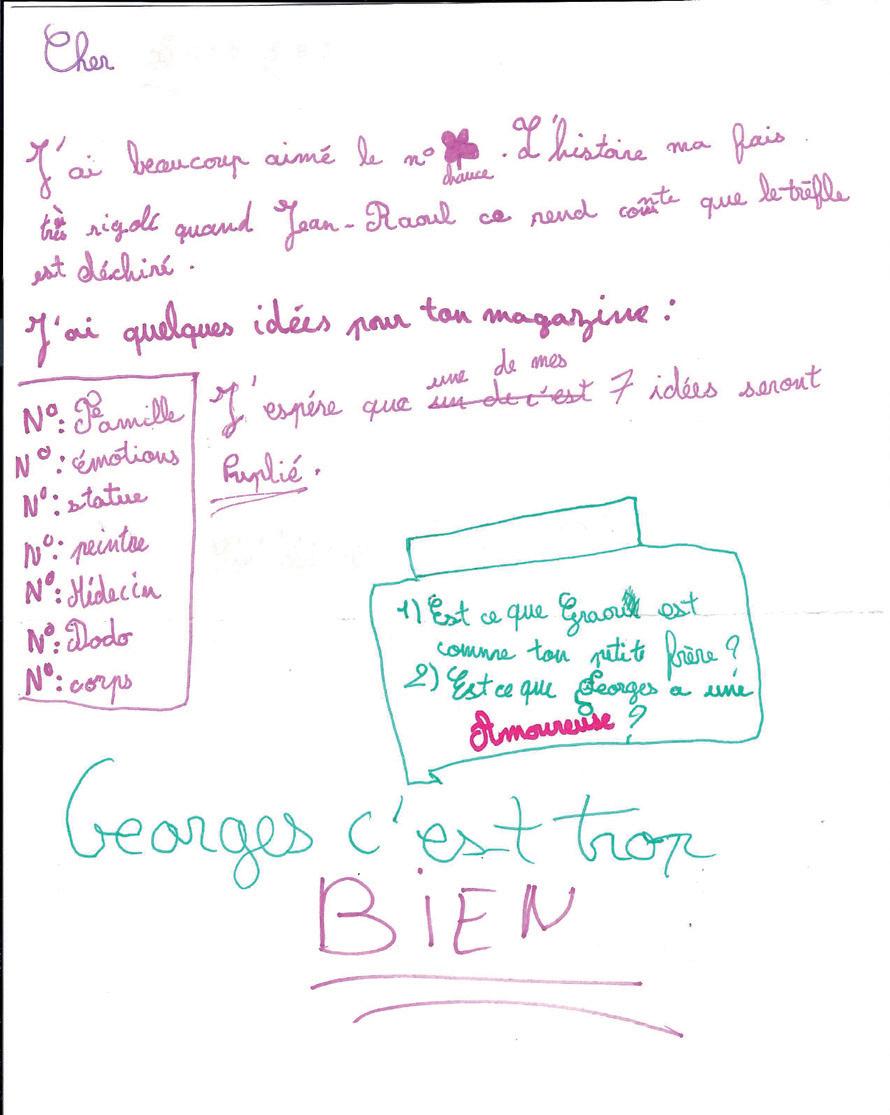 Cher
J'ai beaucoup aimé le n° . L'histoire ma fais
chance
très rigolé quand Jean-Raoul ce rend comnte que le trèfle
est déchiré.
J'ai quelques idées pour ton magazine :
N°: Famille
N°: émotions
N°: statue
N°: peintre
N°: Médecin
N°: Dodo
N°: corps
une de mes
J'espére que un de c'est 7 idées seront
Puplié.
1) Est ce que Graoul est
comme ton petite frère ?
2) Est ce que Georges a une
Amoureuse ?
Georges c'est trop
BIEN